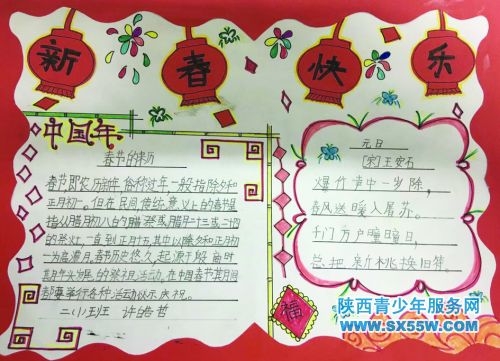 新春快乐
中国年
春节的来历
春节即农历新年,俗称过年,一般指除夕和
正月初一。但在民间,传统意义上的春节是
指从腊月初八的腊祭或腊月二十三或二十四
的祭灶,一直到正月十五,其中以除夕和正月初
一为高潮月。春节历史悠久,起源于殷商时
期年头岁尾的祭祀活动。在中国春节期间
都要举行各种活动以示庆祝。
二(1)班 许皓哲
元日
[宋]王安石
爆竹声中一岁除,
春风送暖入屠苏。
千门万户曈曈日,
总把新桃换旧符。
福
陕西青少年服务网
www.sx55w.com